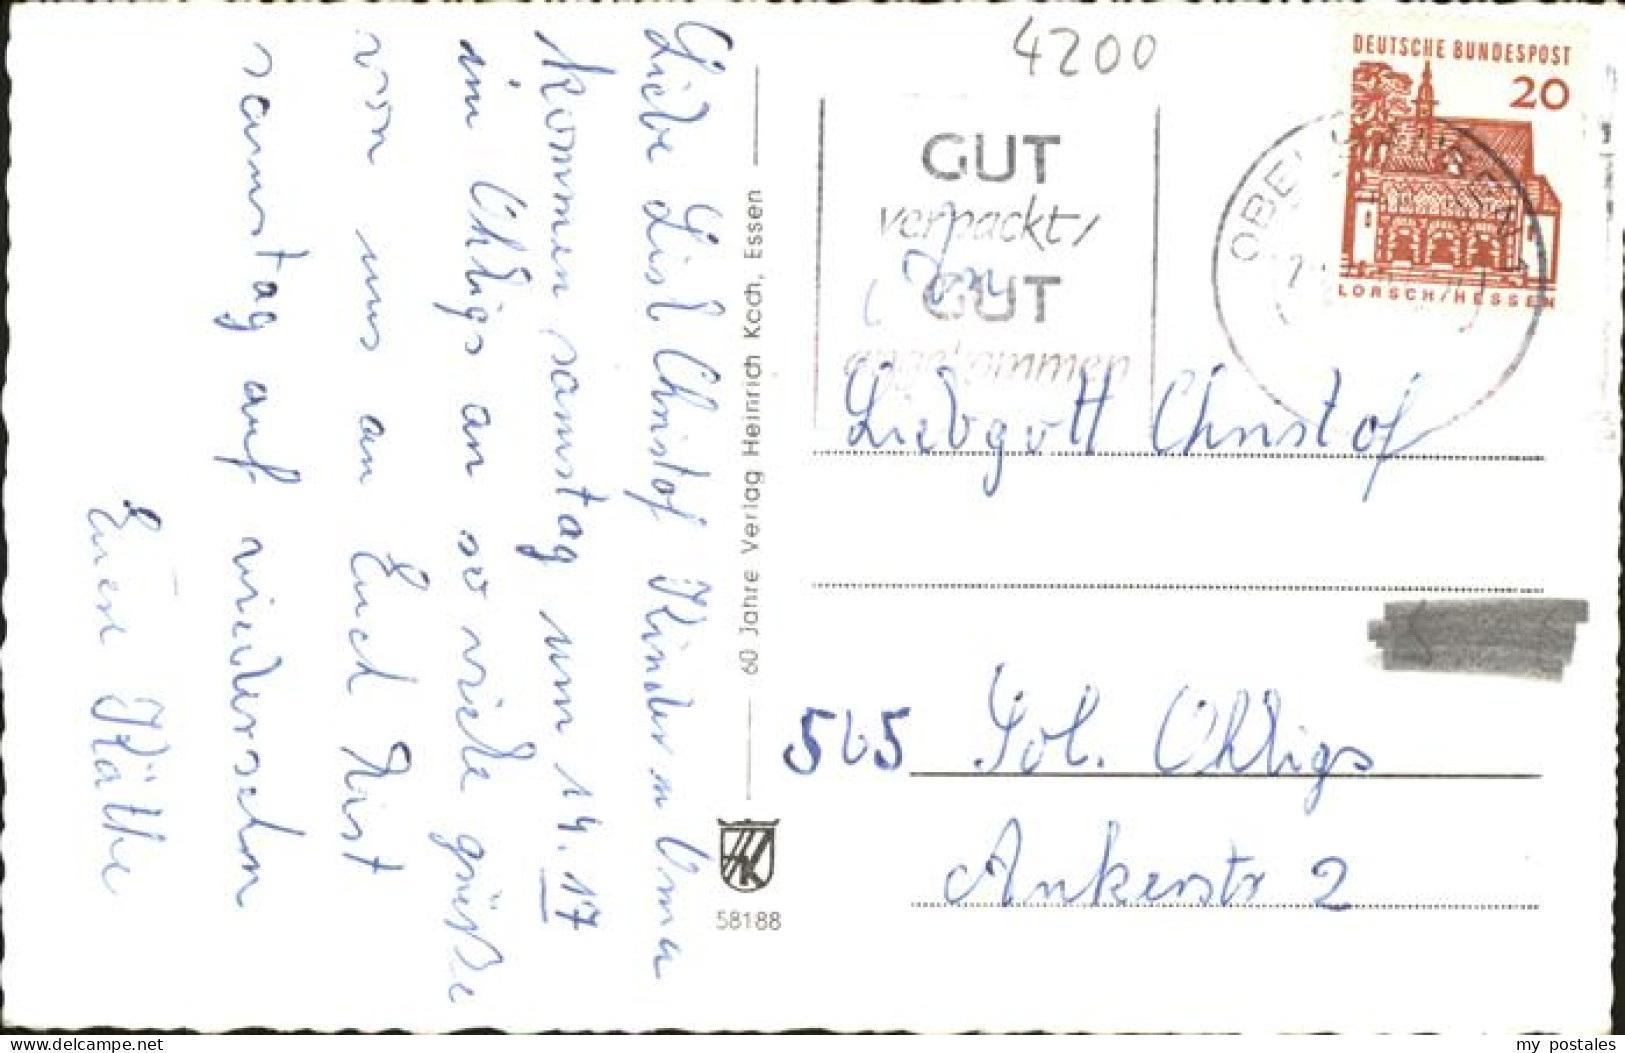 Liebe Lisl Christof Kinder u Oma
Kommen samstag um 14.17
in Ohligs an so viele grüße
von uns an Euch Kirst
samstag auf wiedersehn
Eure Käthe
60 Jahre Verlag Heinrich Koch, Essen
58188
4200
GUT
verpackt,
GUT
angekommen
OBERHAUSEN 1
DEUTSCHE BUNDESPOST
20
LORSCH/HESSEN
Fam
Liebgott Christof
565 Sol. Ohligs
Ankerstr 2
my postales
www.delcampe.net